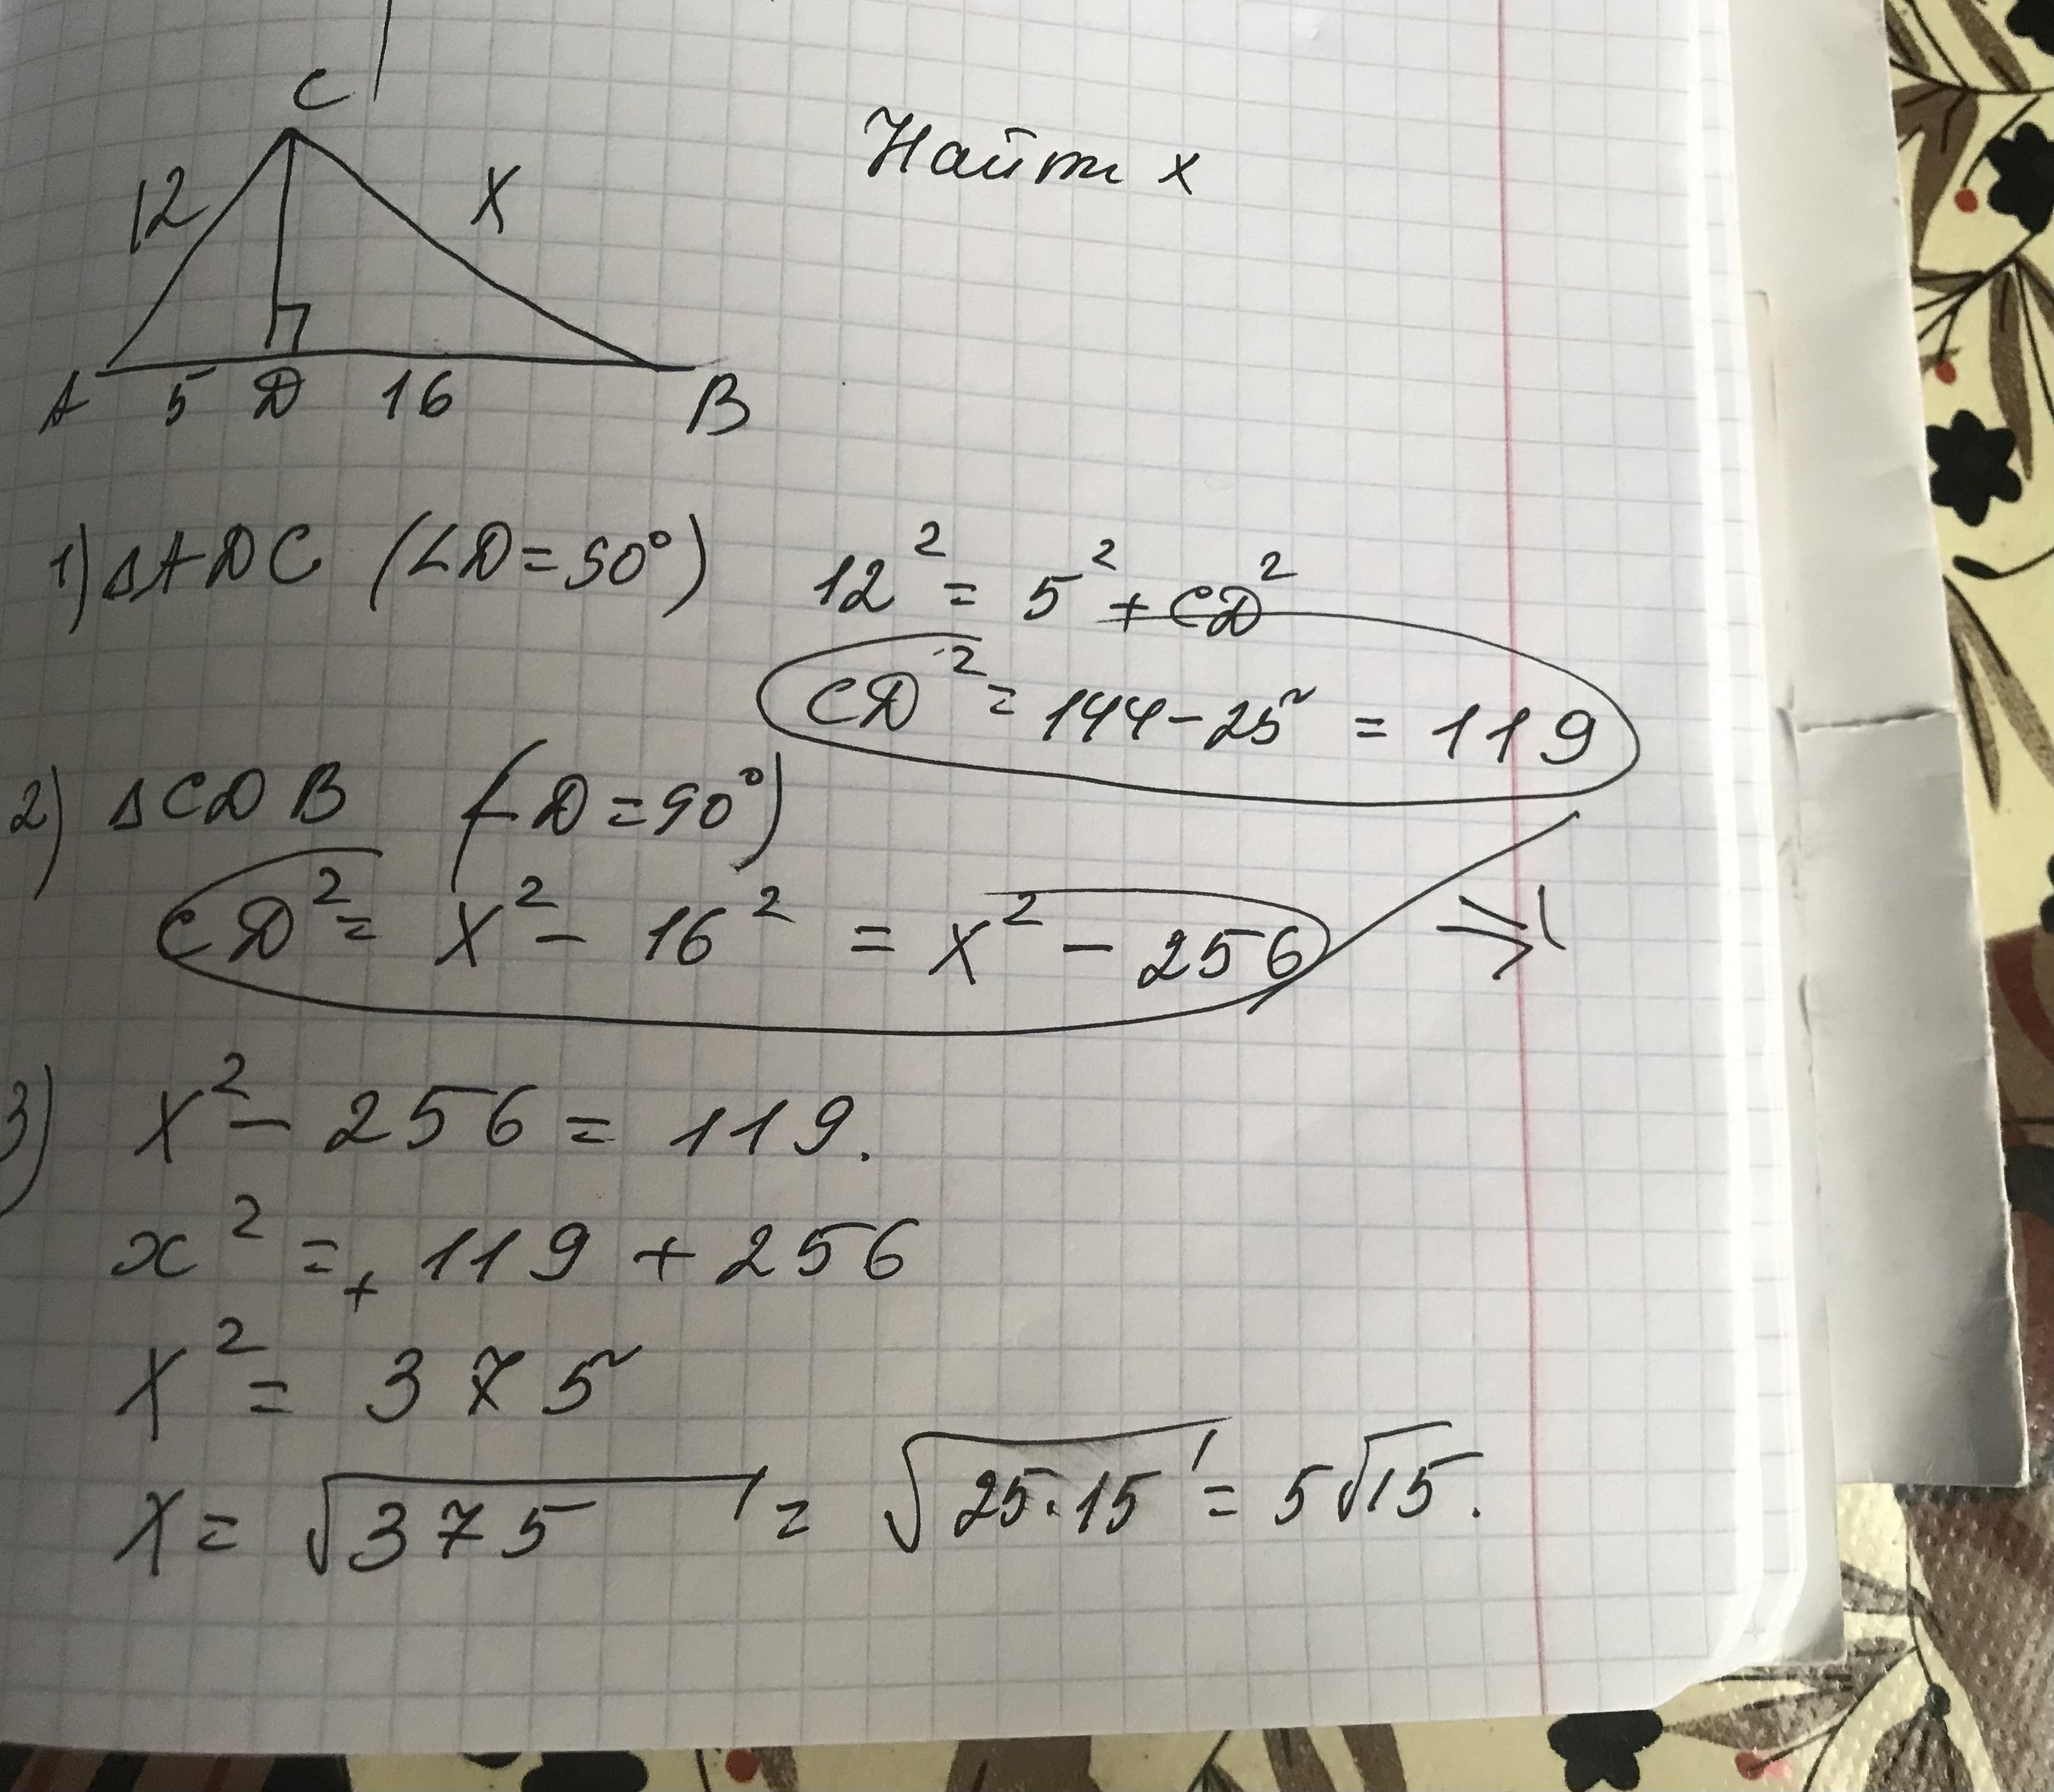 C
12 X
Найти x
A 5 D 16 B
1) ΔADC (∠D=90°) 12² = 5² + CD²
CD² = 144-25 = 119
2) ΔCDB (∠D=90°)
CD² = X² - 16² = X² - 256 ⇒
3) X² - 256 = 119.
x² = + 119 + 256
X² = 375
X = √375 = √25·15 = 5√15.